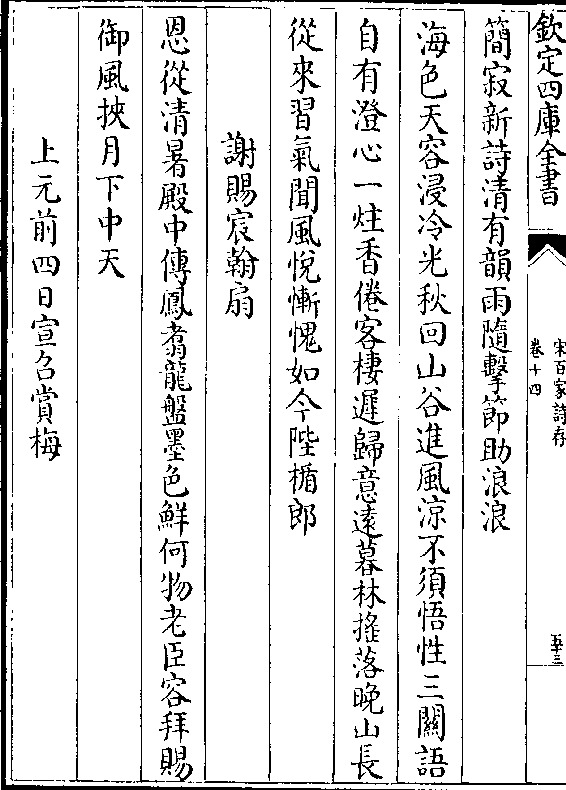 欽定四庫全書
宋百家詩存
卷十四
五十三
簡寂新詩清有韻雨隨擊節助浪浪
海色天容浸冷光秋回山谷進風涼不須悟性三關語
自有澄心一炷香倦客棲遲歸意遠暮林搖落晚山長
從來習氣聞風悅慚愧如今陛楯郎
謝賜宸翰扇
恩從清暑殿中傳鳳翥龍盤墨色鮮何物老臣容拜賜
御風挾月下中天
上元前四日宣召賞梅